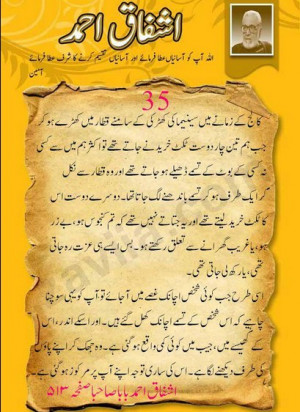 اشفاق احمد
اللہ آپ کو آسانیاں عطا فرمائے اور آسانیاں تقسیم کرنے کا شرف عطا فرمائے
آمین
35
کالج کے زمانے میں سینیما کی کھڑکی کے سامنے قطار میں کھڑے ہو کر
جب ہم تین چار دوست ٹکٹ خریدنے جاتے تھے تو اکثر ہم میں سے کسی
نہ کسی کے بوٹ کے تسمے ڈھیلے ہو جاتے تھے اور وہ قطار سے نکل
کر ایک طرف ہو کر تسمے باندھنے لگ جاتا تھا۔ دوسرے دوست اس
کا ٹکٹ خرید لیتے تھے اور یہ جتاتے نہیں تھے کہ تم کنجوس ہو، بے زر
ہو، یا غریب گھرانے سے تعلق رکھتے ہو۔ بس ایسے ہی عزت رہ جاتی
تھی، یا رکھ لی جاتی تھی۔
اسی طرح جب کوئی شخص اچانک غصے میں آ جائے تو آپ کو یہی سوچنا
چاہیے کہ اس شخص کے تسمے اچانک کھل گئے ہیں۔ اور اسکے اندر، اس
کے کھیسے میں، جیب میں کوئی کمی واقع ہو گئی ہے۔ وہ جھک کر اپنے پاؤں
کی طرف دیکھنے لگا ہے۔ اس کی ساری توجہ اپنے آپ پر مرکوز ہو گئی ہے۔
اشفاق احمد بابا صاحبا صفحہ ۵۱۳